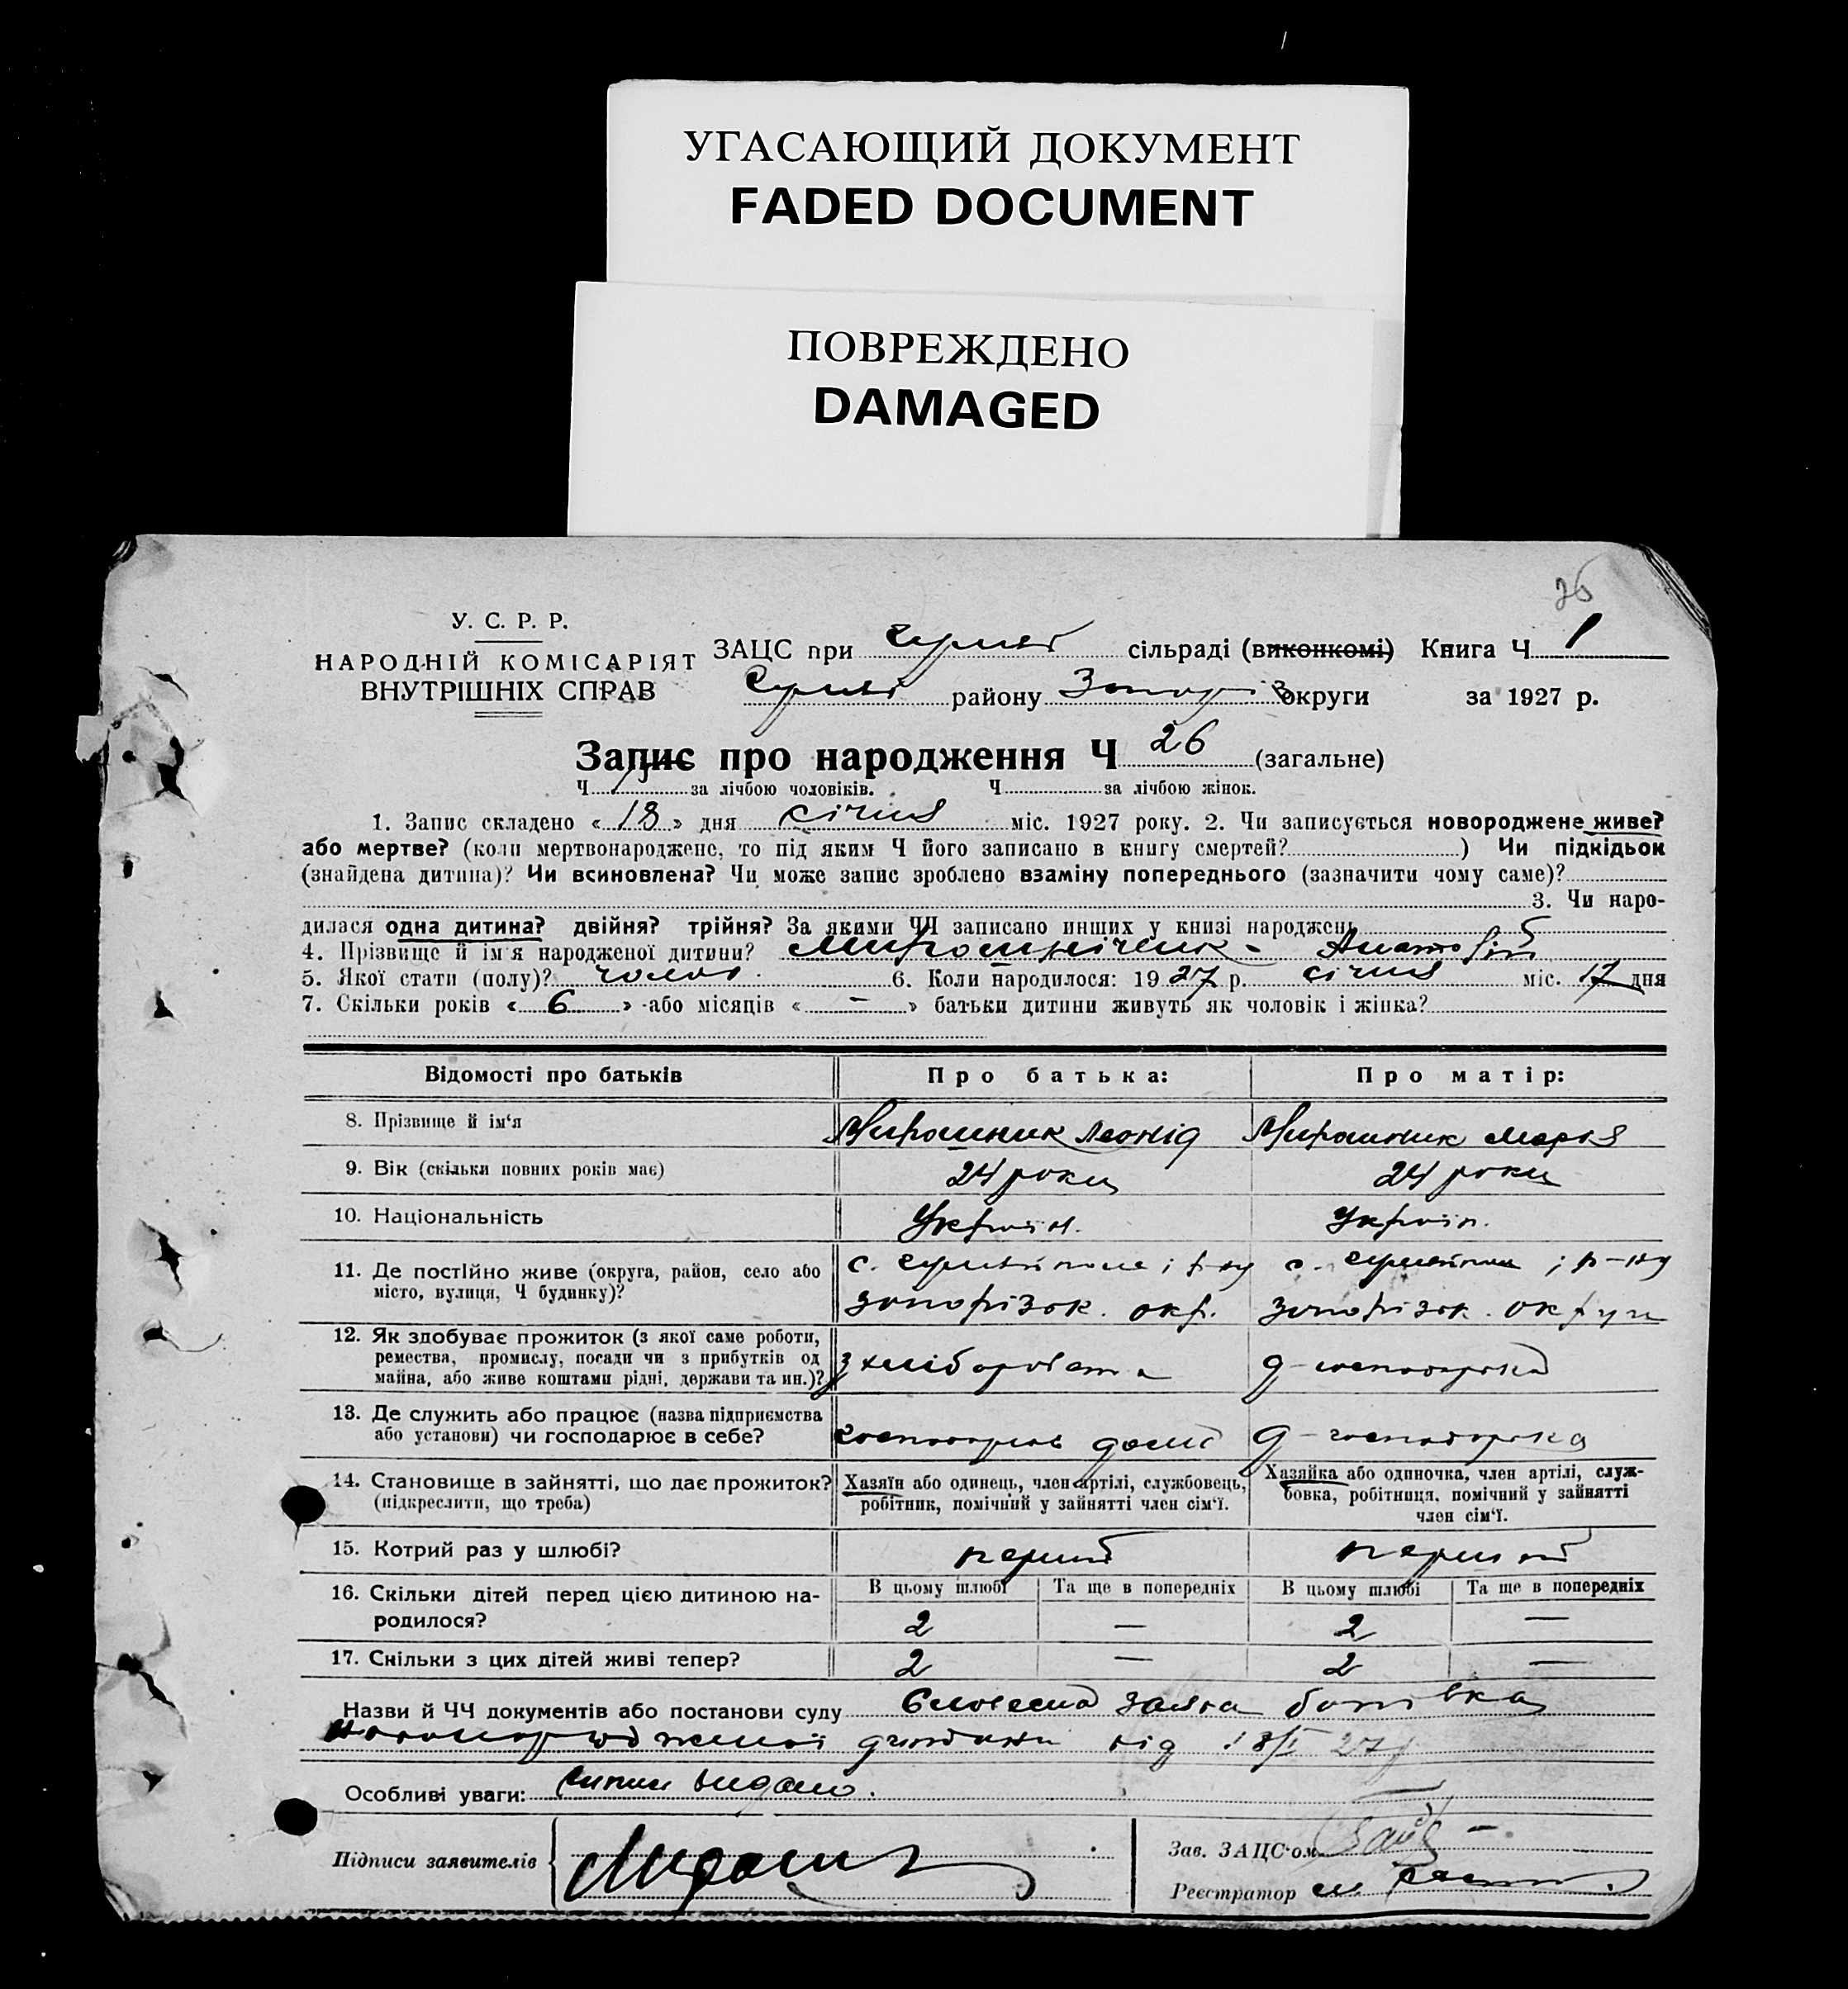 УГАСАЮЩИЙ ДОКУМЕНТ
FADED DOCUMENT
ПОВРЕЖДЕНО
DAMAGED
26
У. С. Р. Р.
НАРОДНІЙ КОМІСАРІЯТ
ВНУТРІШНІХ СПРАВ
ЗАЦС при сільраді (виконкомі) Книга Ч 1
району округи за 1927 р.
Запис про народження Ч 26 (загальне)
Ч за лічбою чоловіків. Ч за лічбою жінок.
1. Запис складено « 18 » дня січня міс. 1927 року. 2. Чи записується новороджене живе?
або мертве? (коли мертвонароджене, то під яким Ч його записано в книгу смертей? ) Чи підкідьок
(знайдена дитина)? Чи всиновлена? Чи може запис зроблено взаміну попереднього (зазначити чому саме)?
3. Чи наро-
дилася одна дитина? двійня? трійня? За якими ЧЧ записано инших у книзі народжень
4. Прізвище й ім'я народженої дитини? - Анатолій
5. Якої стати (полу)? чолов. 6. Коли народилося: 1927 р. січня міс. 17 дня
7. Скільки років « 6 » або місяців « — » батьки дитини живуть як чоловік і жінка?
Відомості про батьків
Про батька:
Про матір:
8. Прізвище й ім'я
Мирошник Леонід
Мирошник Марія
9. Вік (скільки повних років має)
24 роки
24 роки
10. Національність
Україн.
Україн.
11. Де постійно живе (округа, район, село або
місто, вулиця, Ч будинку)?
с. р-ну
Запорізьк. окр.
с. р-ну
Запорізьк. округи
12. Як здобуває прожиток (з якої саме роботи,
ремества, промислу, посади чи з прибутків од
майна, або живе коштами рідні, держави та ин.)?
з хліборобства
д-господарка
13. Де служить або працює (назва підприємства
або установи) чи господарює в себе?
господарює дома
д-господарка
14. Становище в зайнятті, що дає прожиток?
(підкреслити, що треба)
Хазяїн або одинець, член артілі, службовець,
робітник, помічний у зайнятті член сім'ї.
Хазяйка або одиночка, член артілі, служ-
бовка, робітниця, помічний у зайнятті
член сім'ї.
15. Котрий раз у шлюбі?
перший
перший
16. Скільки дітей перед цією дитиною на-
родилося?
В цьому шлюбі Та ще в попередніх В цьому шлюбі Та ще в попередніх
2 — 2 —
17. Скільки з цих дітей живі тепер?
2 — 2 —
Назви й ЧЧ документів або постанови суду Словесна заява батька
новонародженої дитини від 18/I 27 р
Особливі уваги: видано.
Підписи заявителів
Зав. ЗАЦС'ом
Реєстратор